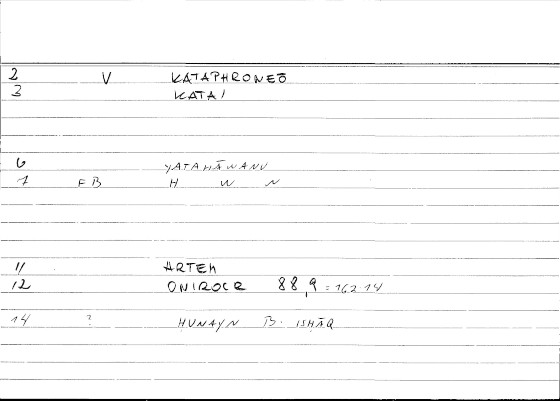 2 V KATAPHRONEŌ
3 KATAI
6 YATAHĀWANU
7 FB H W N
11 ARTEM
12 ONIROCR 88,9 = 162 14
14 ? HUNAYN B. ISHĀQ